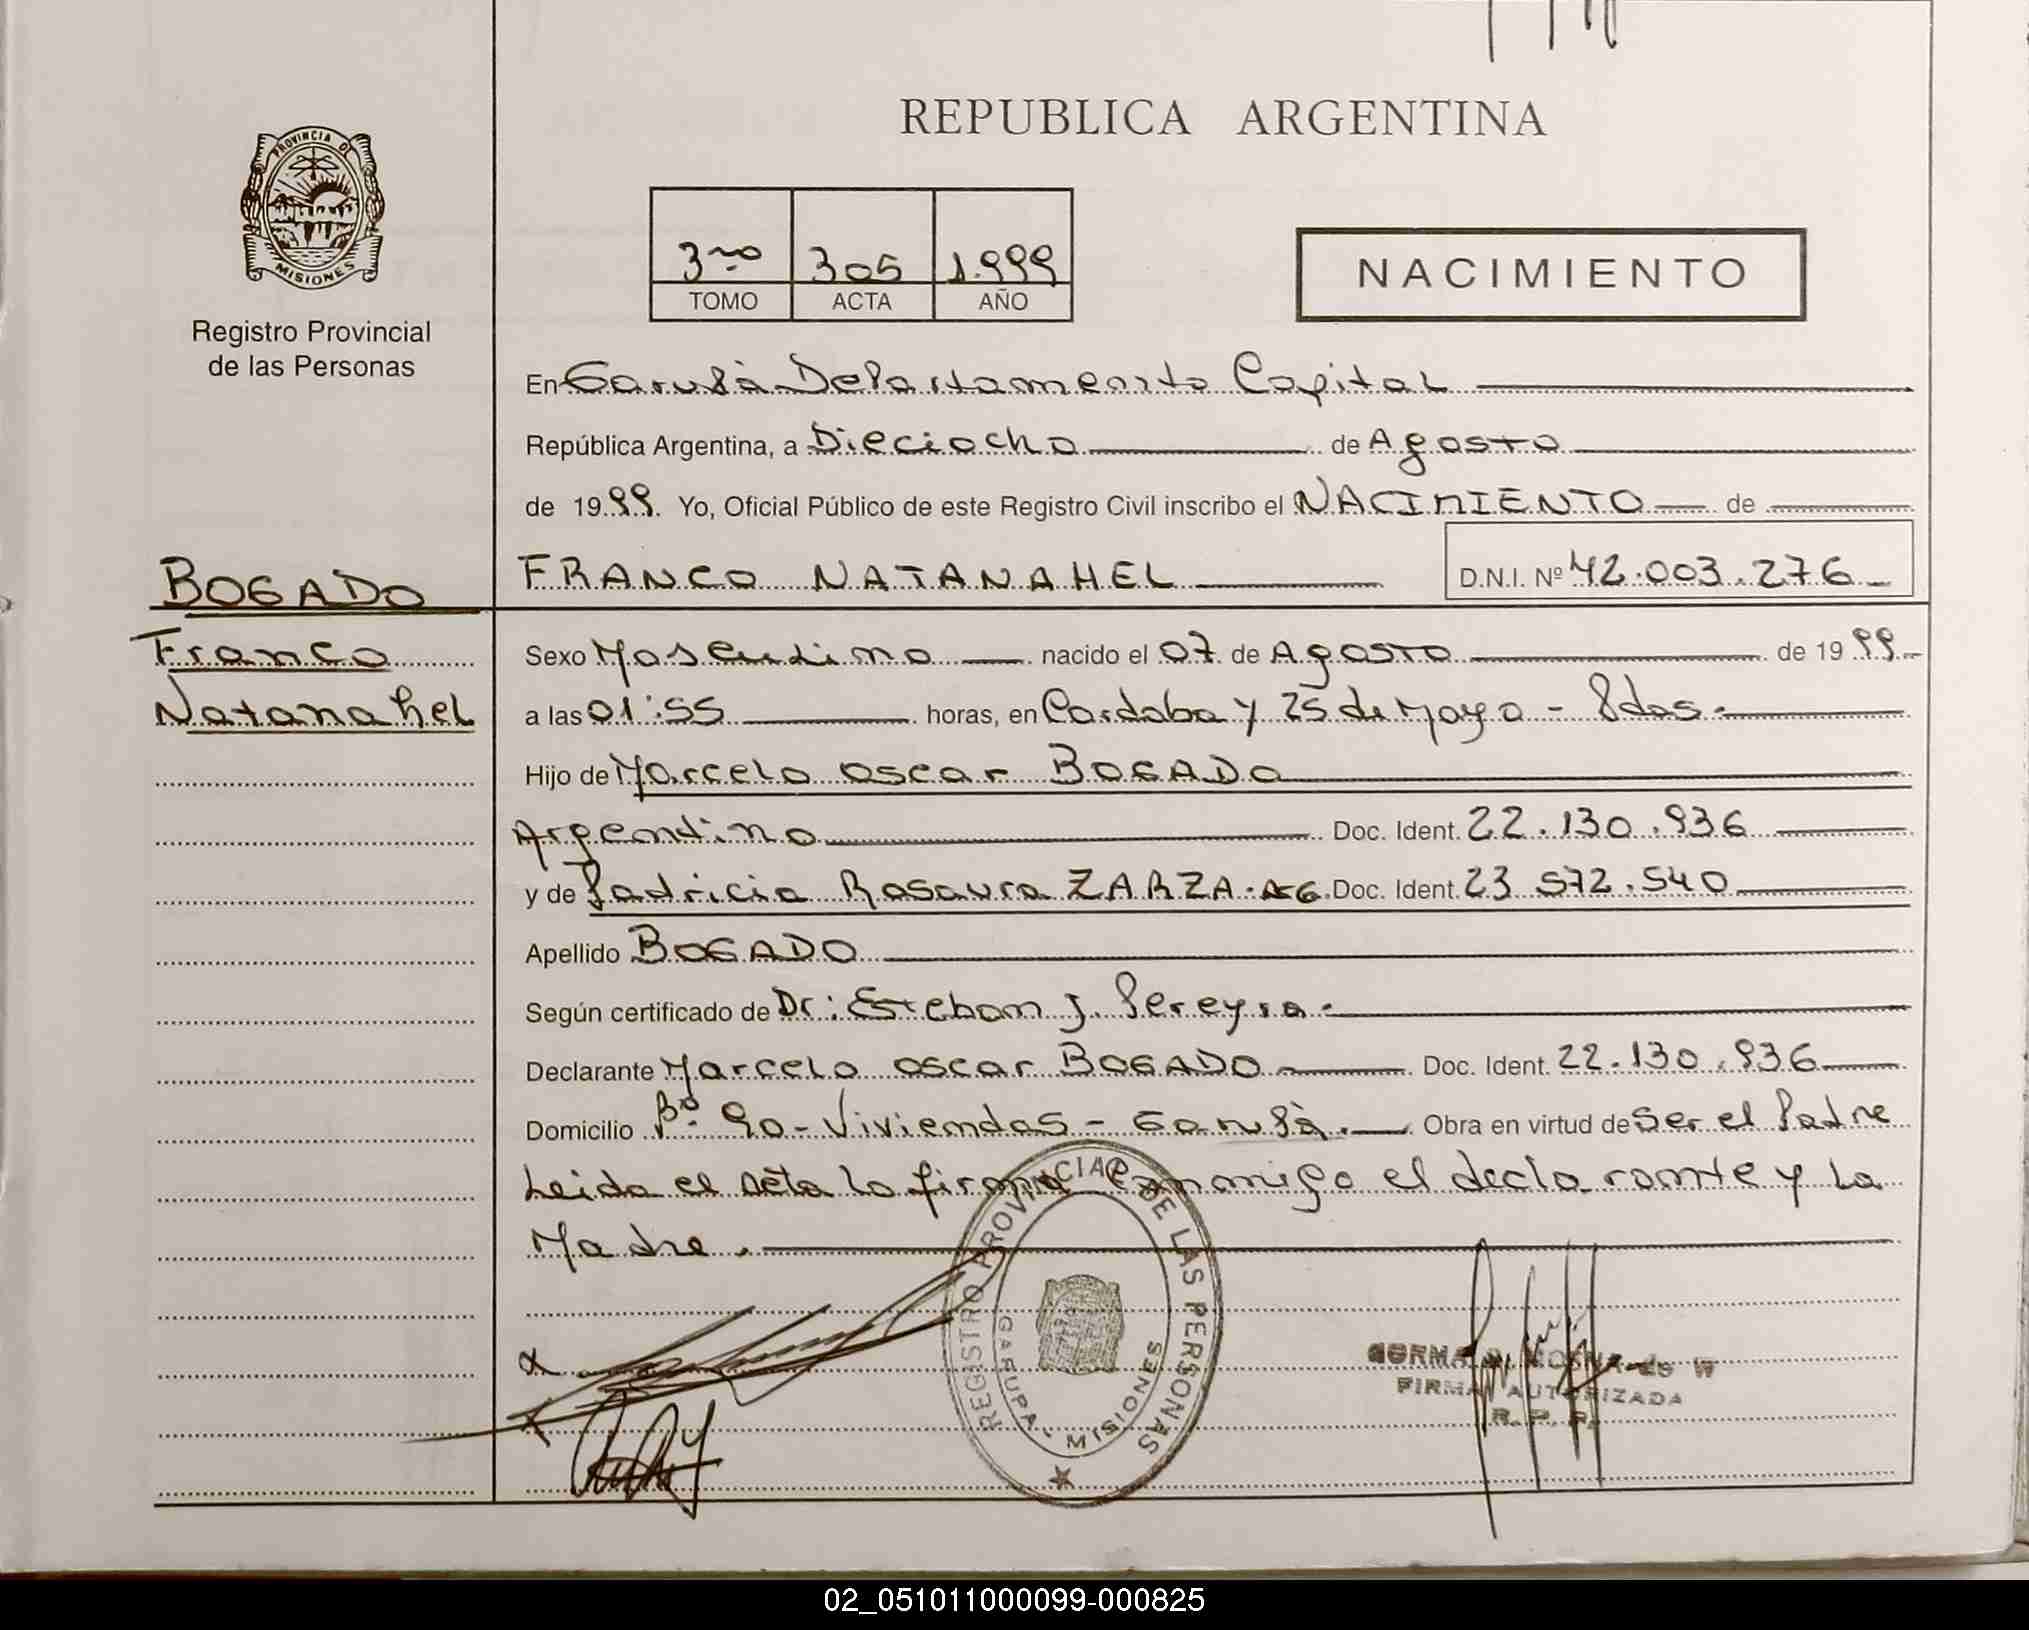 REPUBLICA ARGENTINA
PROVINCIA DE
MISIONES
Registro Provincial
de las Personas
3ro 305 1.999
TOMO ACTA AÑO
NACIMIENTO
En Garupà Departamento Capital
República Argentina, a Dieciocho de Agosto
de 1999. Yo, Oficial Público de este Registro Civil inscribo el NACIMIENTO de
BOGADO
FRANCO NATANAHEL D.N.I. Nº 42.003.276
Franco
Natanahel
Sexo Masculino nacido el 07 de Agosto de 1999
a las 01:55 horas, en Cordoba y 25 de Mayo - Pdas.
Hijo de Marcelo oscar BOGADO
Argentino Doc. Ident. 22.130.936
y de Patricia Rosaura ZARZA. AG. Doc. Ident. 23 572.540
Apellido BOGADO
Según certificado de Dr: Esteban J. Pereyra.
Declarante Marcelo oscar BOGADO Doc. Ident. 22.130.936
Domicilio Bº. 90 - Viviendas - Garupà. Obra en virtud de Ser el Padre
Leida el acta la firma Conmigo el declarante y La
Madre.
REGISTRO PROVINCIAL DE LAS PERSONAS
GARUPA - MISIONES
FIRMA AUTORIZADA
R. P. P.
02_051011000099-000825